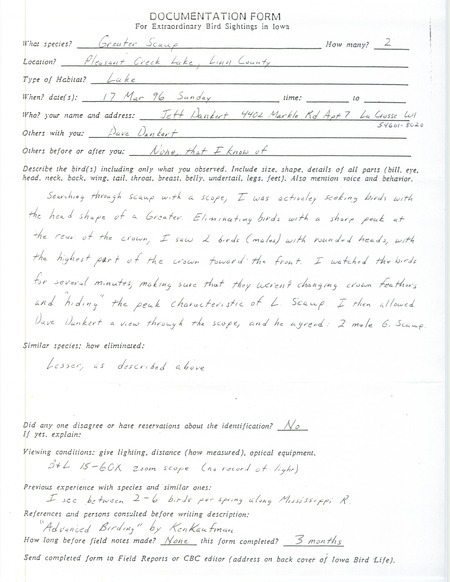 DOCUMENTATION FORM
For Extraordinary Bird Sightings in Iowa
What species? Greater Scaup How many? 2
Location? Pleasant Creek Lake, Linn County
Type of Habitat? Lake
When? date(s): 17 Mar 96 Sunday time: to
Who? your name and address: Jeff Dankert 4402 Markle Rd Apt 7 La Crosse WI
54601-8020
Others with you: Dave Dankert
Others before or after you: None, that I know of
Describe the bird(s) including only what you observed. Include size, shape, details of all parts (bill, eye,
head, neck, back, wing, tail, throat, breast, belly, undertail, legs, feet). Also mention voice and behavior.
Searching through scaup with a scope, I was actively seeking birds with
the head shape of a Greater. Eliminating birds with a sharp peak at
the rear of the crown, I saw 2 birds (males) with rounded heads, with
the highest part of the crown toward the front. I watched the birds
for several minutes, making sure that they weren't changing crown feathers
and "hiding" the peak characteristic of L. Scaup. I then allowed
Dave Dankert a view through the scope, and he agreed: 2 male G. Scaup.
Similar species; how eliminated:
Lesser, as described above
Did any one disagree or have reservations about the identification? No
If yes, explain:
Viewing conditions: give lighting, distance (how measured), optical equipment.
B+L 15-60X zoom scope (no record of light)
Previous experience with species and similar ones:
I see between 2-6 birds per spring along Mississippi R.
References and persons consulted before writing description:
"Advanced Birding" by Ken Kaufman
How long before field notes made? None this form completed? 3 months
Send completed form to Field Reports or CBC editor (address on back cover of Iowa Bird Life).